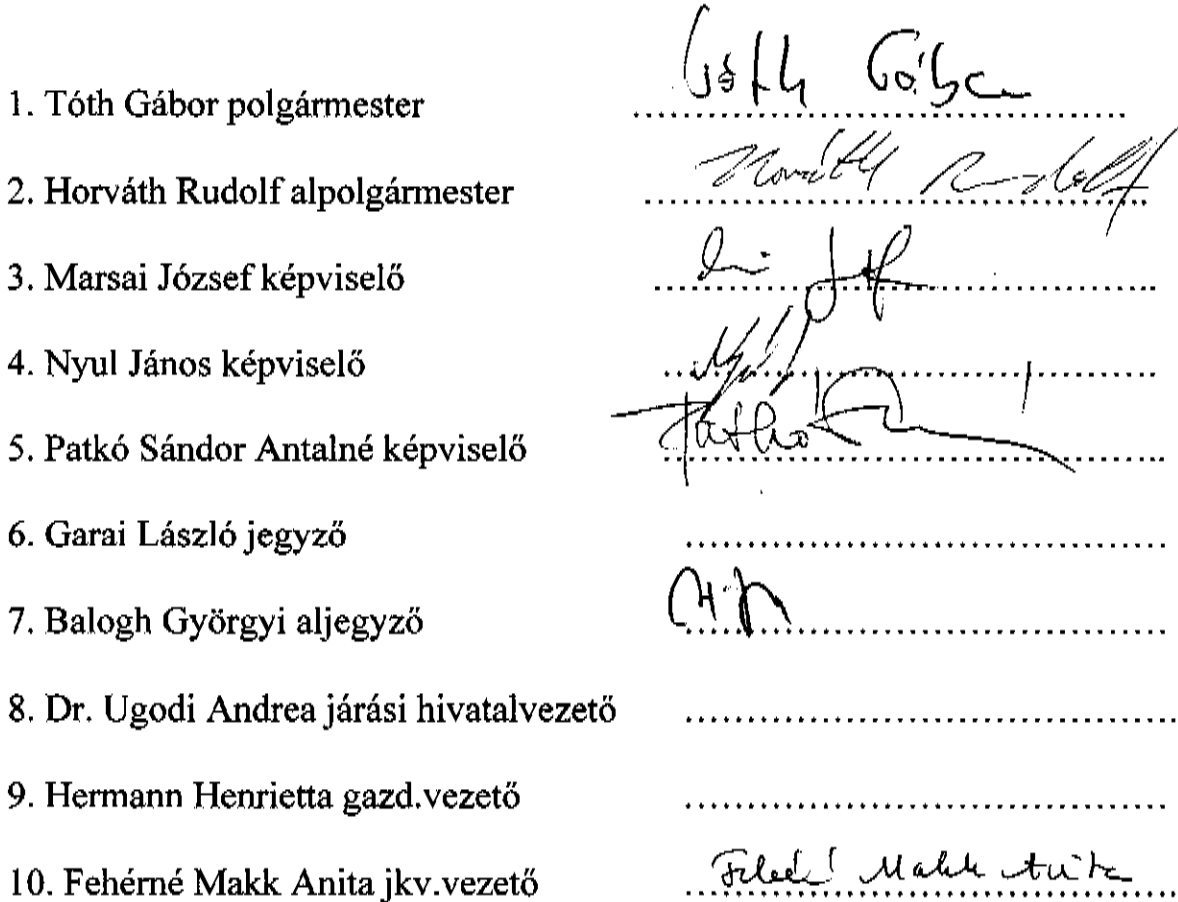 1. Tóth Gábor polgármester Tóth Gábor
2. Horváth Rudolf alpolgármester Horváth Rudolf
3. Marsai József képviselő
4. Nyul János képviselő
5. Patkó Sándor Antalné képviselő Patkó
6. Garai László jegyző
7. Balogh Györgyi aljegyző
8. Dr. Ugodi Andrea járási hivatalvezető
9. Hermann Henrietta gazd.vezető
10. Fehérné Makk Anita jkv.vezető Fehérné Makk Anita